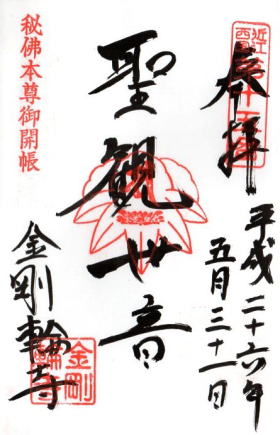 奉拝
平成二十六年
五月三十一日
聖観世音
金剛輪寺
秘佛本尊御開帳
金剛
輪寺